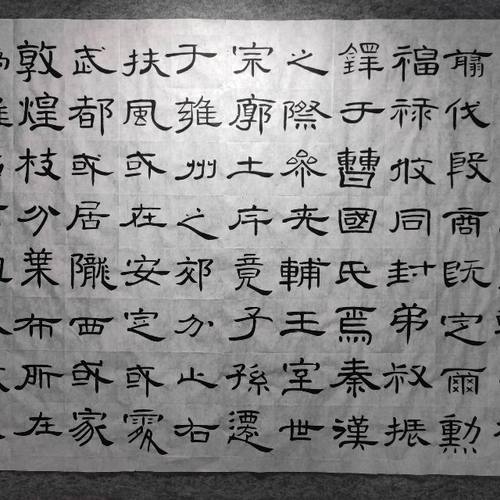 翦伐殷商既定爾勳
福祿攸同封弟叔振
鐸于曹國氏焉秦漢
之際參夾輔王室世
宗廓土斥竟子孫遷
于雍州之郊分止右
扶風或在安定或處
武都或居隴西或家
敦煌枝分葉布所在